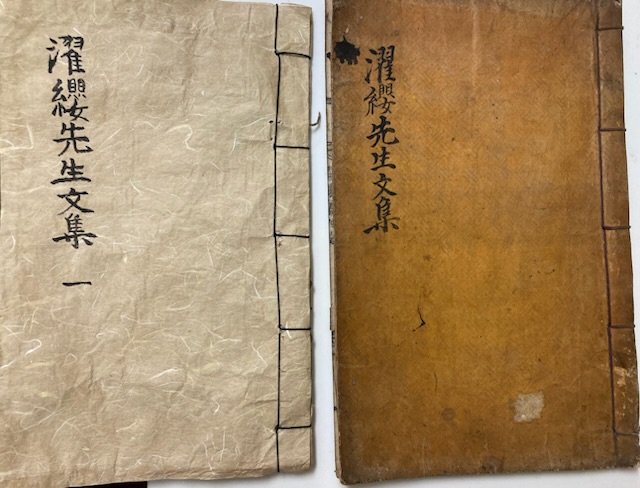 濯纓先生文集 一
濯纓先生文集